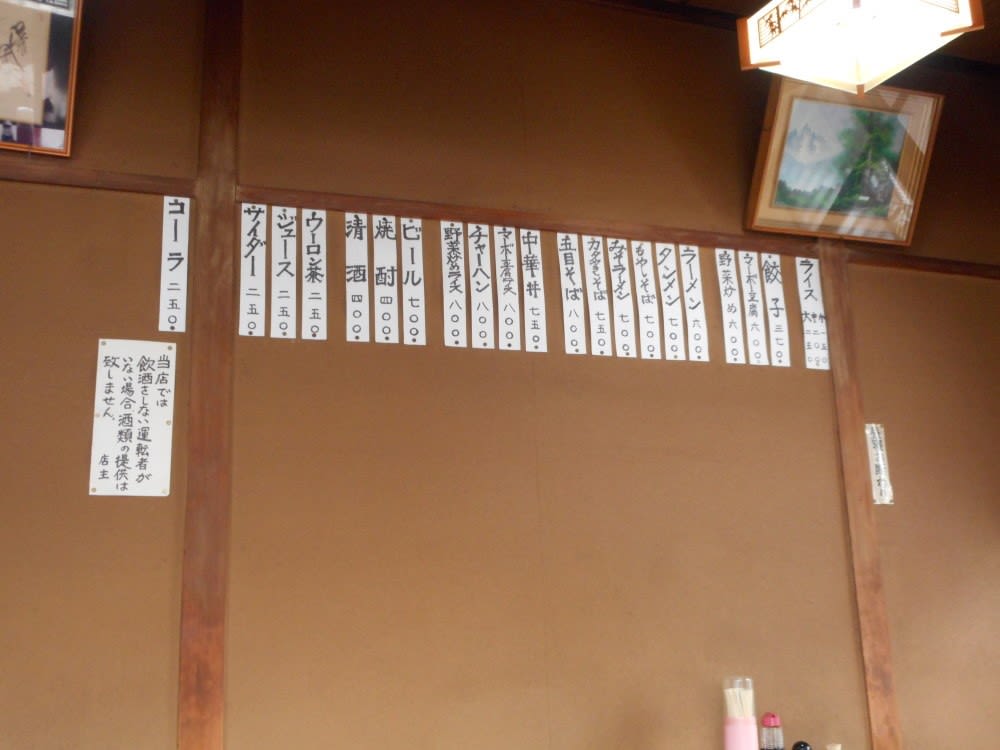 ライス 大 二五〇 中 二〇〇 小 一五〇
餃子 三七〇
マーボー豆腐 六〇〇
野菜炒め 六〇〇
ラーメン 六〇〇
タンメン 七〇〇
もやしそば 七〇〇
みそラーメン 七〇〇
カタ焼きそば 七五〇
五目そば 八〇〇
中華丼 七五〇
八〇〇
チャーハン 八〇〇
八〇〇
ビール 七〇〇
焼酎 四〇〇
清酒 四〇〇
ウーロン茶 二五〇
ジュース 二五〇
サイダー 二五〇
コーラ 二五〇
当店では
飲酒をしない運転者が
いない場合酒類の提供は
致しません。
店主